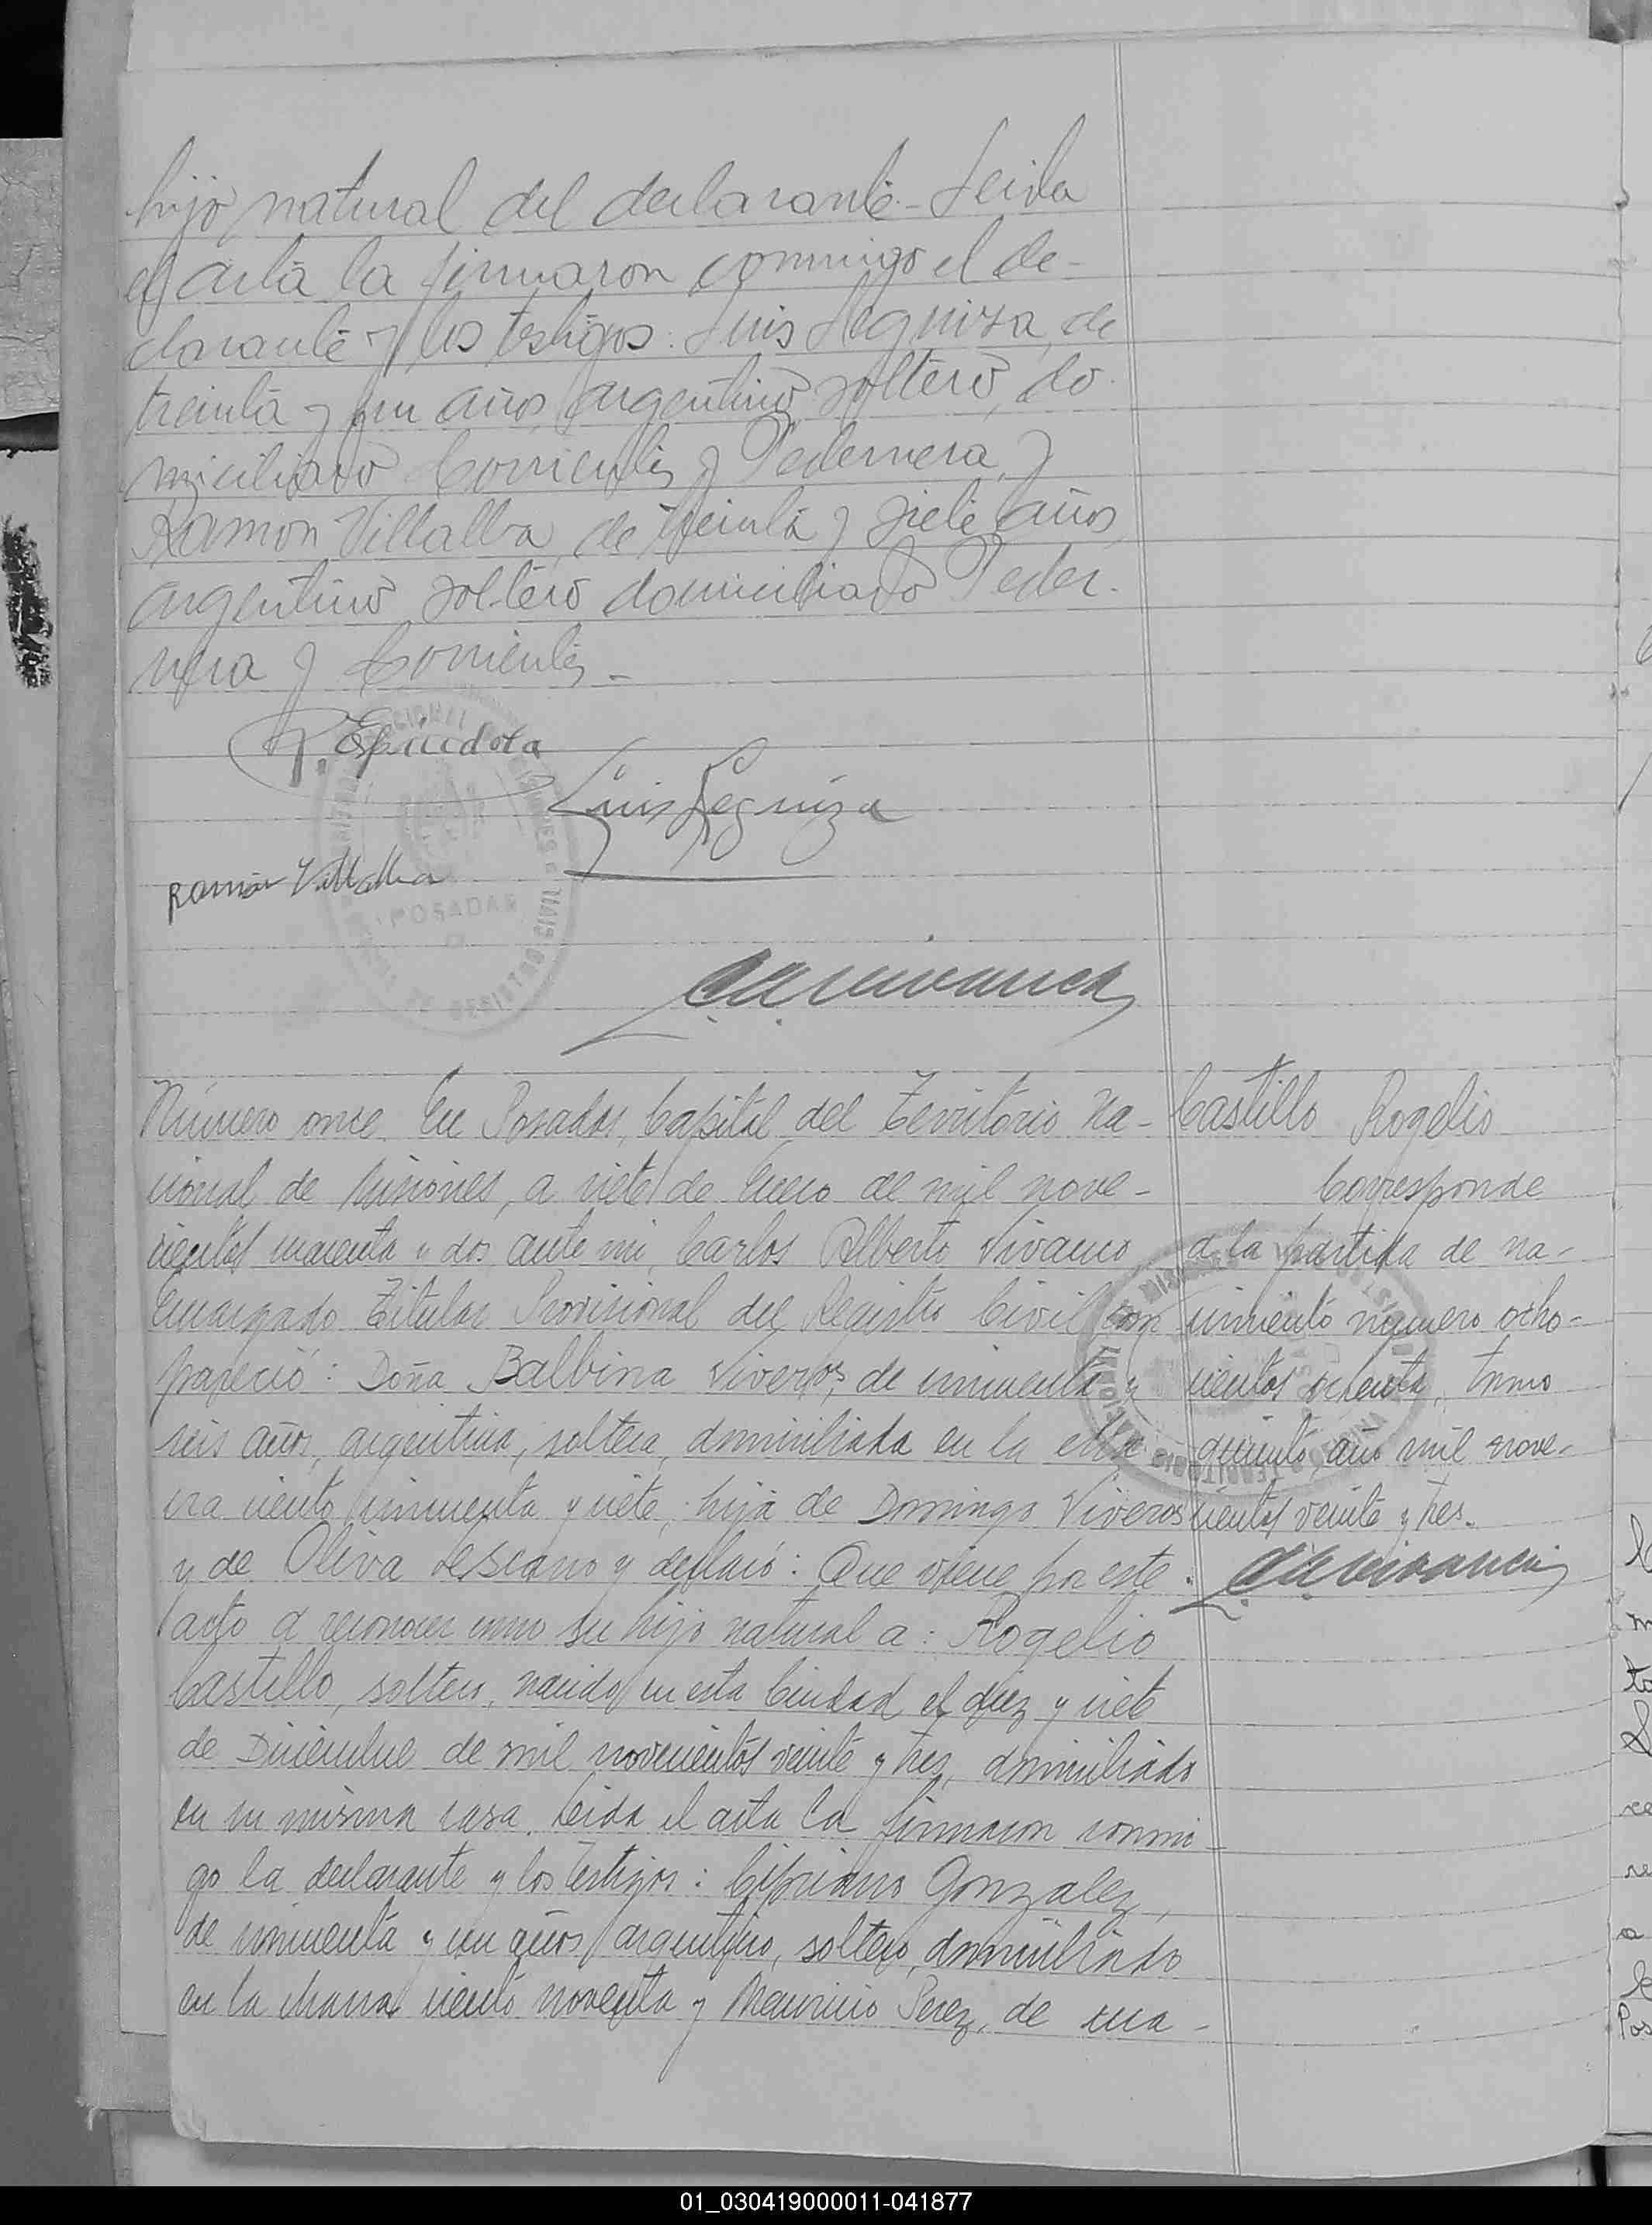 hijo natural del declarante - Leida
el acta la firmaron conmigo el de-
clarante y los testigos: Luis Leguiza, de
treinta y un años, argentino, soltero, do-
miciliado Corrientes y Pedernera, y
Ramon Villalba, de treinta y siete años,
argentino soltero domiciliado Peder-
nera y Corrientes -
R. Espíndola
Luis Leguiza
Ramón Villalba
POSADAS
C.A. Vivanco
Número once. En Posadas, Capital del Territorio Na-
cional de Misiones, a siete de Enero de mil nove-
cientos cuarenta y dos, ante mi, Carlos Alberto Vivanco,
Encargado Titular Provisional del Registro Civil, com
pareció: Doña Balbina Viveros, de cincuenta y
seis años, argentina, soltera, domiciliada en la cha-
cra ciento cincuenta y siete, hija de Domingo Viveros
y de Oliva Lescano y declaró: Que viene por este
acto a reconocer como su hijo natural a: Rogelio
Castillo, soltero, nacido en esta Ciudad el diez y siete
de Diciembre de mil novecientos veinte y tres, domiciliado
en su misma casa. Leida el acta la firmaron conmi-
go la declarante y los testigos: Cipriano Gonzalez,
de cincuenta y un años, argentino, soltero, domiciliado
en la chacra ciento noventa y Mauricio Perez, de cua-
Castillo Rogelio
Corresponde
a la partida de na-
cimiento número ocho-
cientos ochenta, tomo
quinto, año mil nove-
cientos veinte y tres.
C.A. Vivanco
01_030419000011-041877